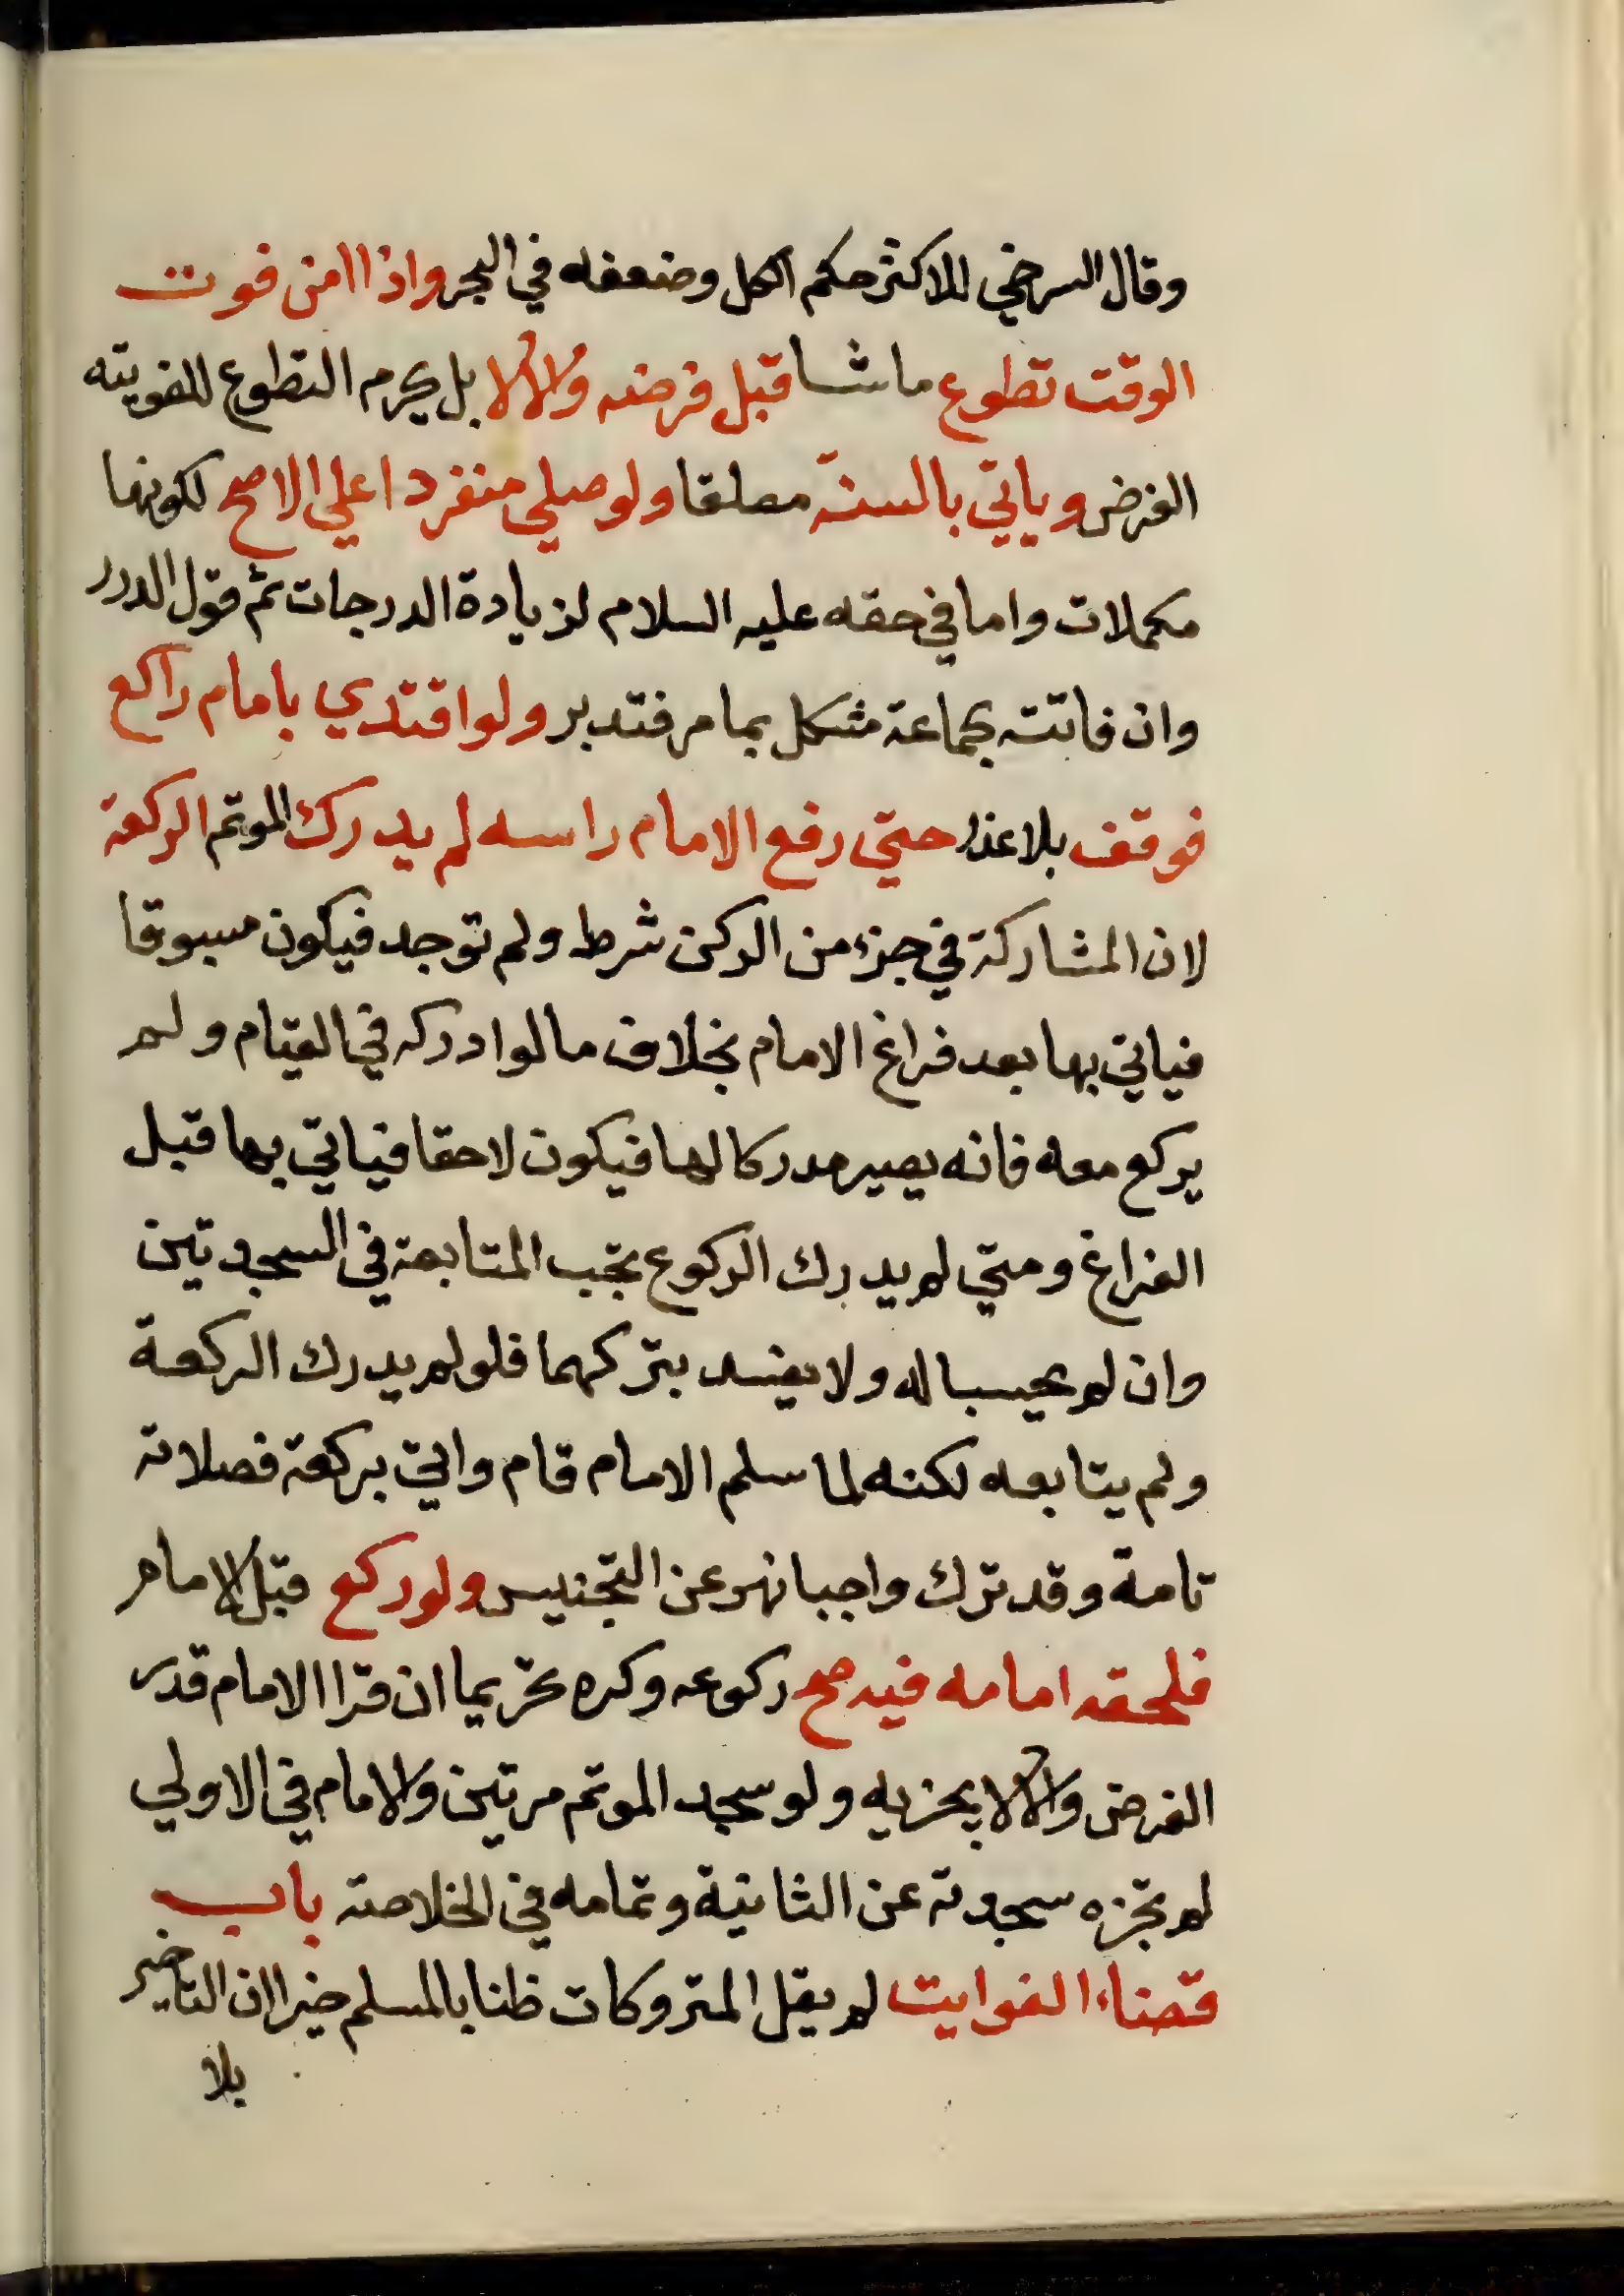 وقال السرخي للاكثر حكم الكل وضعفه في البحر واذا امن فوت
الوقت تطوع ما شا قبل فرضه والا لا بل يحرم التطوع لتفويته
الفرض وياتي بالسنة مطلقا ولو صلي منفردا علي الاصح لكونها
مكملات واما في حقه عليه السلام لزيادة الدرجات ثم قول الدرر
وان فاتته بجماعة مشكل بما مر فتدبر ولو اقتدي بامام راكع
فوقف بلا عذر حتي رفع الامام راسه لم يدرك الموتم الركعة
لان المشاركة في جزء من الركن شرط ولم توجد فيكون مسبوقا
فياتي بها بعد فراغ الامام بخلاف ما لو ادركه في القيام ولم
يركع معه فانه يصير مدركا لها فيكون لاحقا فياتي بها قبل
الفراغ ومتي لم يدرك الركوع تجب المتابعة في السجدتين
وان لم يحسبا له ولا يفسد بتركهما فلو لم يدرك الركعة
ولم يتابعه لكنه لما سلم الامام قام واتي بركعة فصلاته
تامة وقد ترك واجبا نهر عن التجنيس ولو ركع قبل الامام
فلحقه امامه فيه صح ركوعه وكره تحريما ان قرا الامام قدر
الفرض والا لا يجزيه ولو سجد الموتم مرتين والامام في الاولي
لم تجزه سجدته عن الثانية وتمامه في الخلاصة باب
قضاء الفوايت لم يقل المتروكات ظنا بالمسلم خيرا ان التاخير
بلا